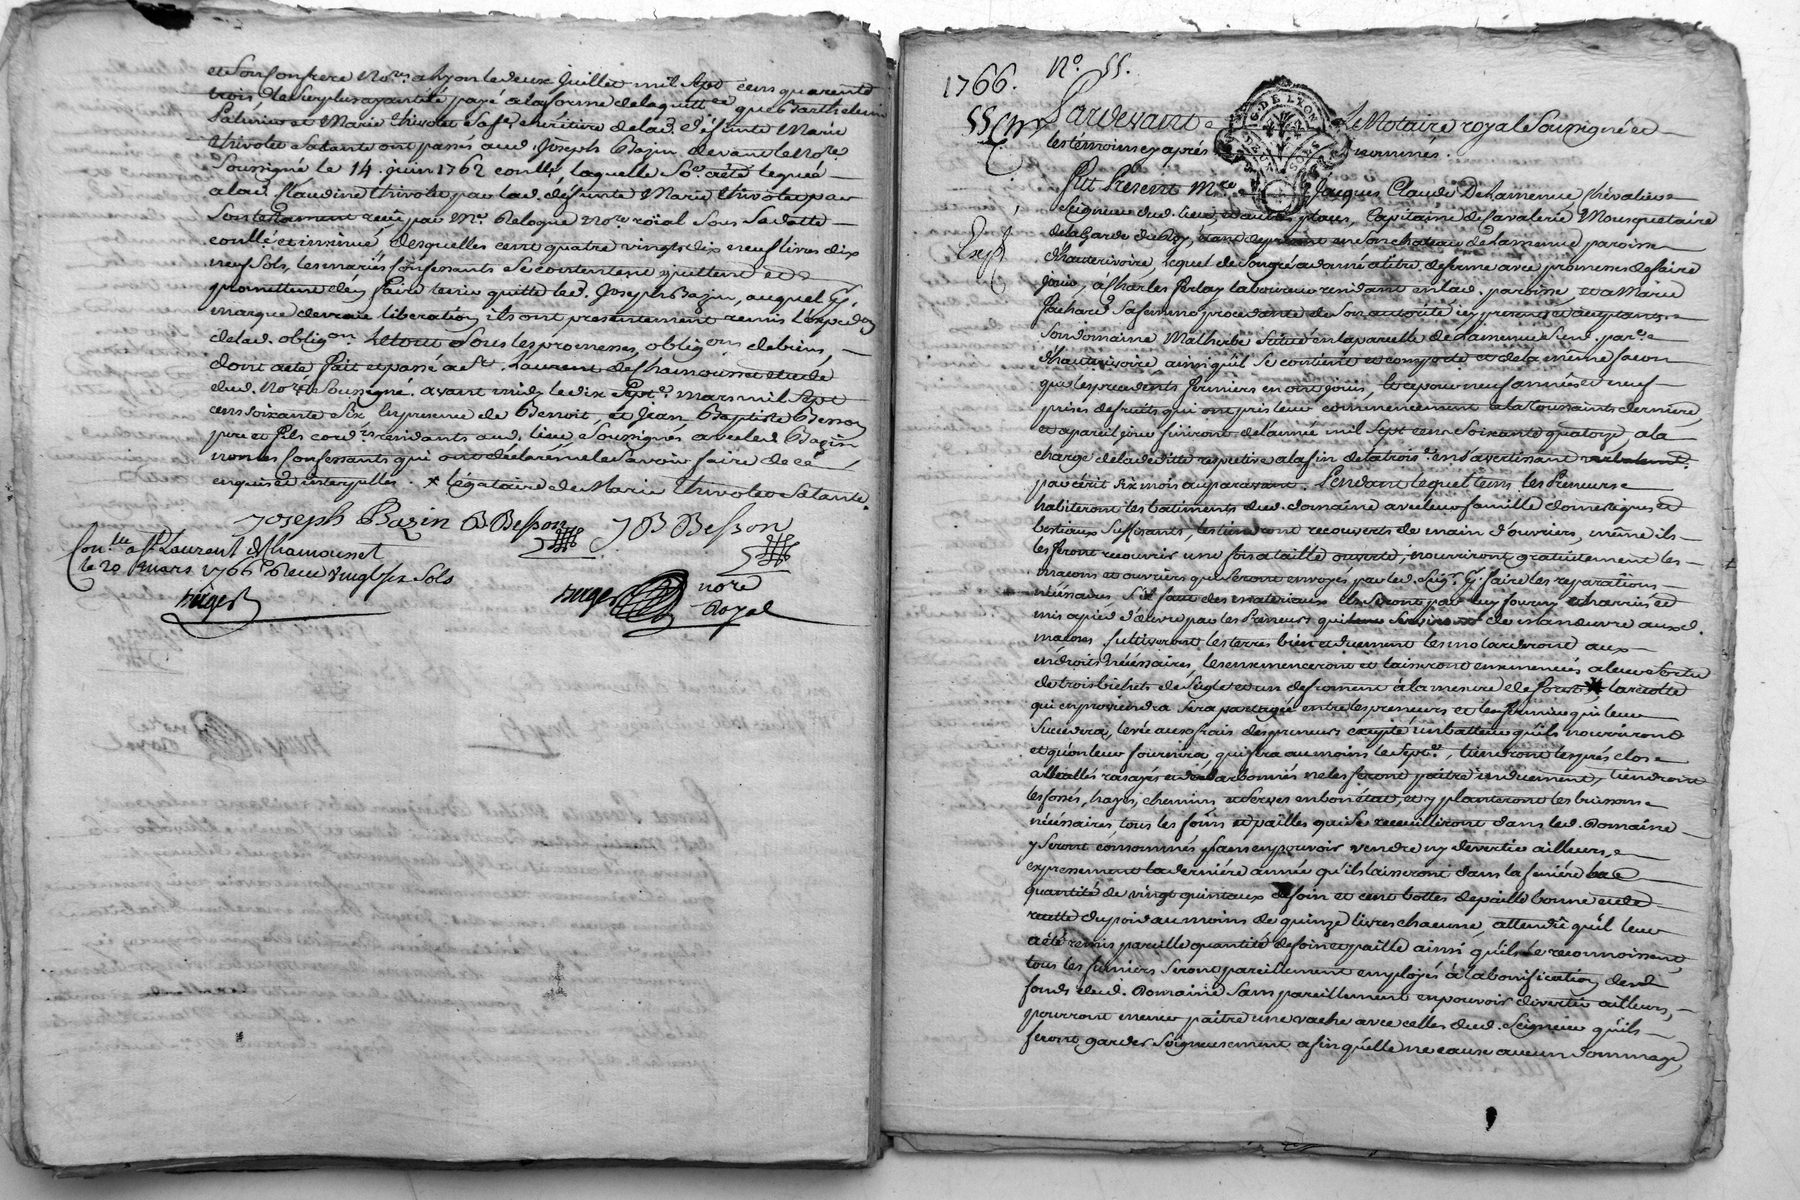 et son confrere No.res a Lyon le deux Juillet mil sept cens quarente
trois le surplus ayant été payé a la forme de la quitt.ce que Barthelemi
et Marie Thivolet sa f.e héritiere de lad. défunte Marie
Thivolet sa tante ont passés aud. Joseph Bazin devant le No.re
soussigné le 14. juin 1762 conllé, laquelle so.e a été leguée
a lad. Claudine Thivolet par lad. défunte Marie Thivolet par
son testament reçû par M.e Delogue No.re roïal sous sa datte
conllé et insinué, desquelles cent quatre vingts dix neuf livres dix
neuf sols, les mariés confessants se contentent quittent et
promettent d'en faire tenir quitte led. Joseph Bazin, auquel en
marque de vraie liberation ils ont presentement remis l'exped.on
de lad. oblig.on Le tout sous les promesses, oblig.ons de biens,
dont acte fait et passé a S.t Laurent de Chamousset etude
dud. No.re soussigné avant midy le dix sept.e mars mil sept
cens soixante six En presence de Benoit, et Jean Baptiste Besson
pere et fils cord.rs residants aud. lieu soussignés avec led. Bazin
non les Confessants qui ont déclaré ne le savoir faire de ce
enquis et interpellés. x légataire de Marie Thivolet sa tante.
Joseph Bazin B Besson J B Besson
Con.lle a S.t Laurent de Chamousset
le 20 mars 1766 Reçu vingt six sols
nore
Royal
1766. N.o 55.
Pardevant Le Notaire royal Soussigné et
G. DE LYON
DEUX SOLS
les témoins cy après nommés.
Fut Présent M.re Jacques Claude De Lamenue Chevalier
Seigneur dud. lieu, et autres places, Capitaine de Cavalerie Mousquetaire
de la Garde du Roy, etant de présent en son chateau de Lamenue paroisse
d'hauterivoire, lequel de son gré a donné a titre de ferme avec promesses de faire
Exp.
jouir, à Charles laboureur residant en lad. paroisse, et a Marie
Pichard sa femme procedante de son autorité icy presents et acceptants
son domaine Malherbe situé en la parcelle de Lamenue sur par.e
d'hauterivoire ainsi qu'il se contient et comporte et de la même façon
que les precedents fermiers en ont joüis, le ce pour neuf années et neuf
prises de fruits qui ont pris leur commencement a la toussaints derniere,
et a pareil jour finiront de l'année mil sept cens soixante quatorze, a la
charge de la deditte respective a la fin de la trois.e en s'avertissant
par écrit six mois auparavant. Pendant lequel tems les Preneurs
habiteront les batiments dud. domaine avec leur famille domestiques et
bestiaux suffisants, les tiendront recouverts de main d'ouvriers, même ils
les feront recouvrir une fois a taille ouverte, nourriront gratuitement les
macons et ouvriers qui seront envoyés par led. Seig.r p.r faire les reparations
nécéssaires s'il faut des materiaux ils seront par luy fourny et charriés et
mis a pied d'œuvre par les Preneurs qui de manœuvre auxd.
macons, cultiveront les terres bien et duement les molarderont aux
endroits nécéssaires, les ensemenceront et laisseront ensemencés a leur sortie
de trois bichets de seigle et un de froment à la mesure de forest la récolte
qui en proviendra sera partagée entre les preneurs et les fermiers qui leur
succedera, levée aux frais des preneurs excepté un batteur qu'ils nourriront
et qu'on leur fournira, qui sera au moins le sept.e, tiendront les prés clos
allbellés rasayés ne les feront paitre induement, tiendront
les fossés, hayes, chemins, et serves en bon état, et y planteront les buissons
nécéssaires, tous les foins et pailles qui se recueilliront dans led. Domaine
y seront consommés sans en pouvoir vendre ny divertir ailleurs,
expressement la derniére année qu'ils laisseront dans la feniére
quantité de vingt quintaux de foin et cent bottes de paille bonne et de
recette du poid au moins de quinze livres chacune, attendû qu'il leur
a été remis pareille quantité de foin et paille ainsi qu'ils le reconnoissent,
tous les fumiers seront pareillement employés à la bonification desd.
fonds dud. Domaine sans pareillement en pouvoir divertir ailleurs,
pourront mener paitre une vache avec celles dud. Seigneur qu'ils
feront garder soigneusement afin qu'elle ne cause aucun dommage,